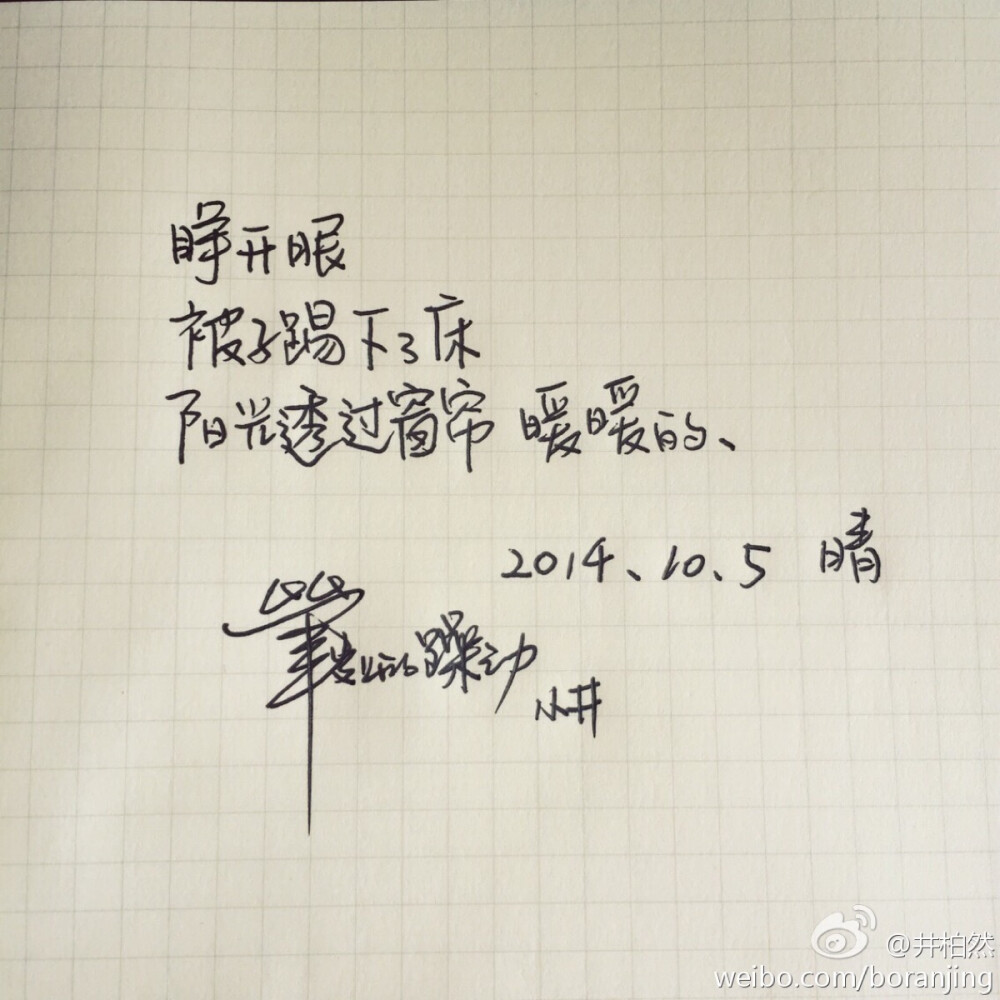 睁开眼
被子踢下了床
阳光透过窗帘 暖暖的、
2014、10、5 晴
笔尖上的躁动
小井
@井柏然
weibo.com/boranjing